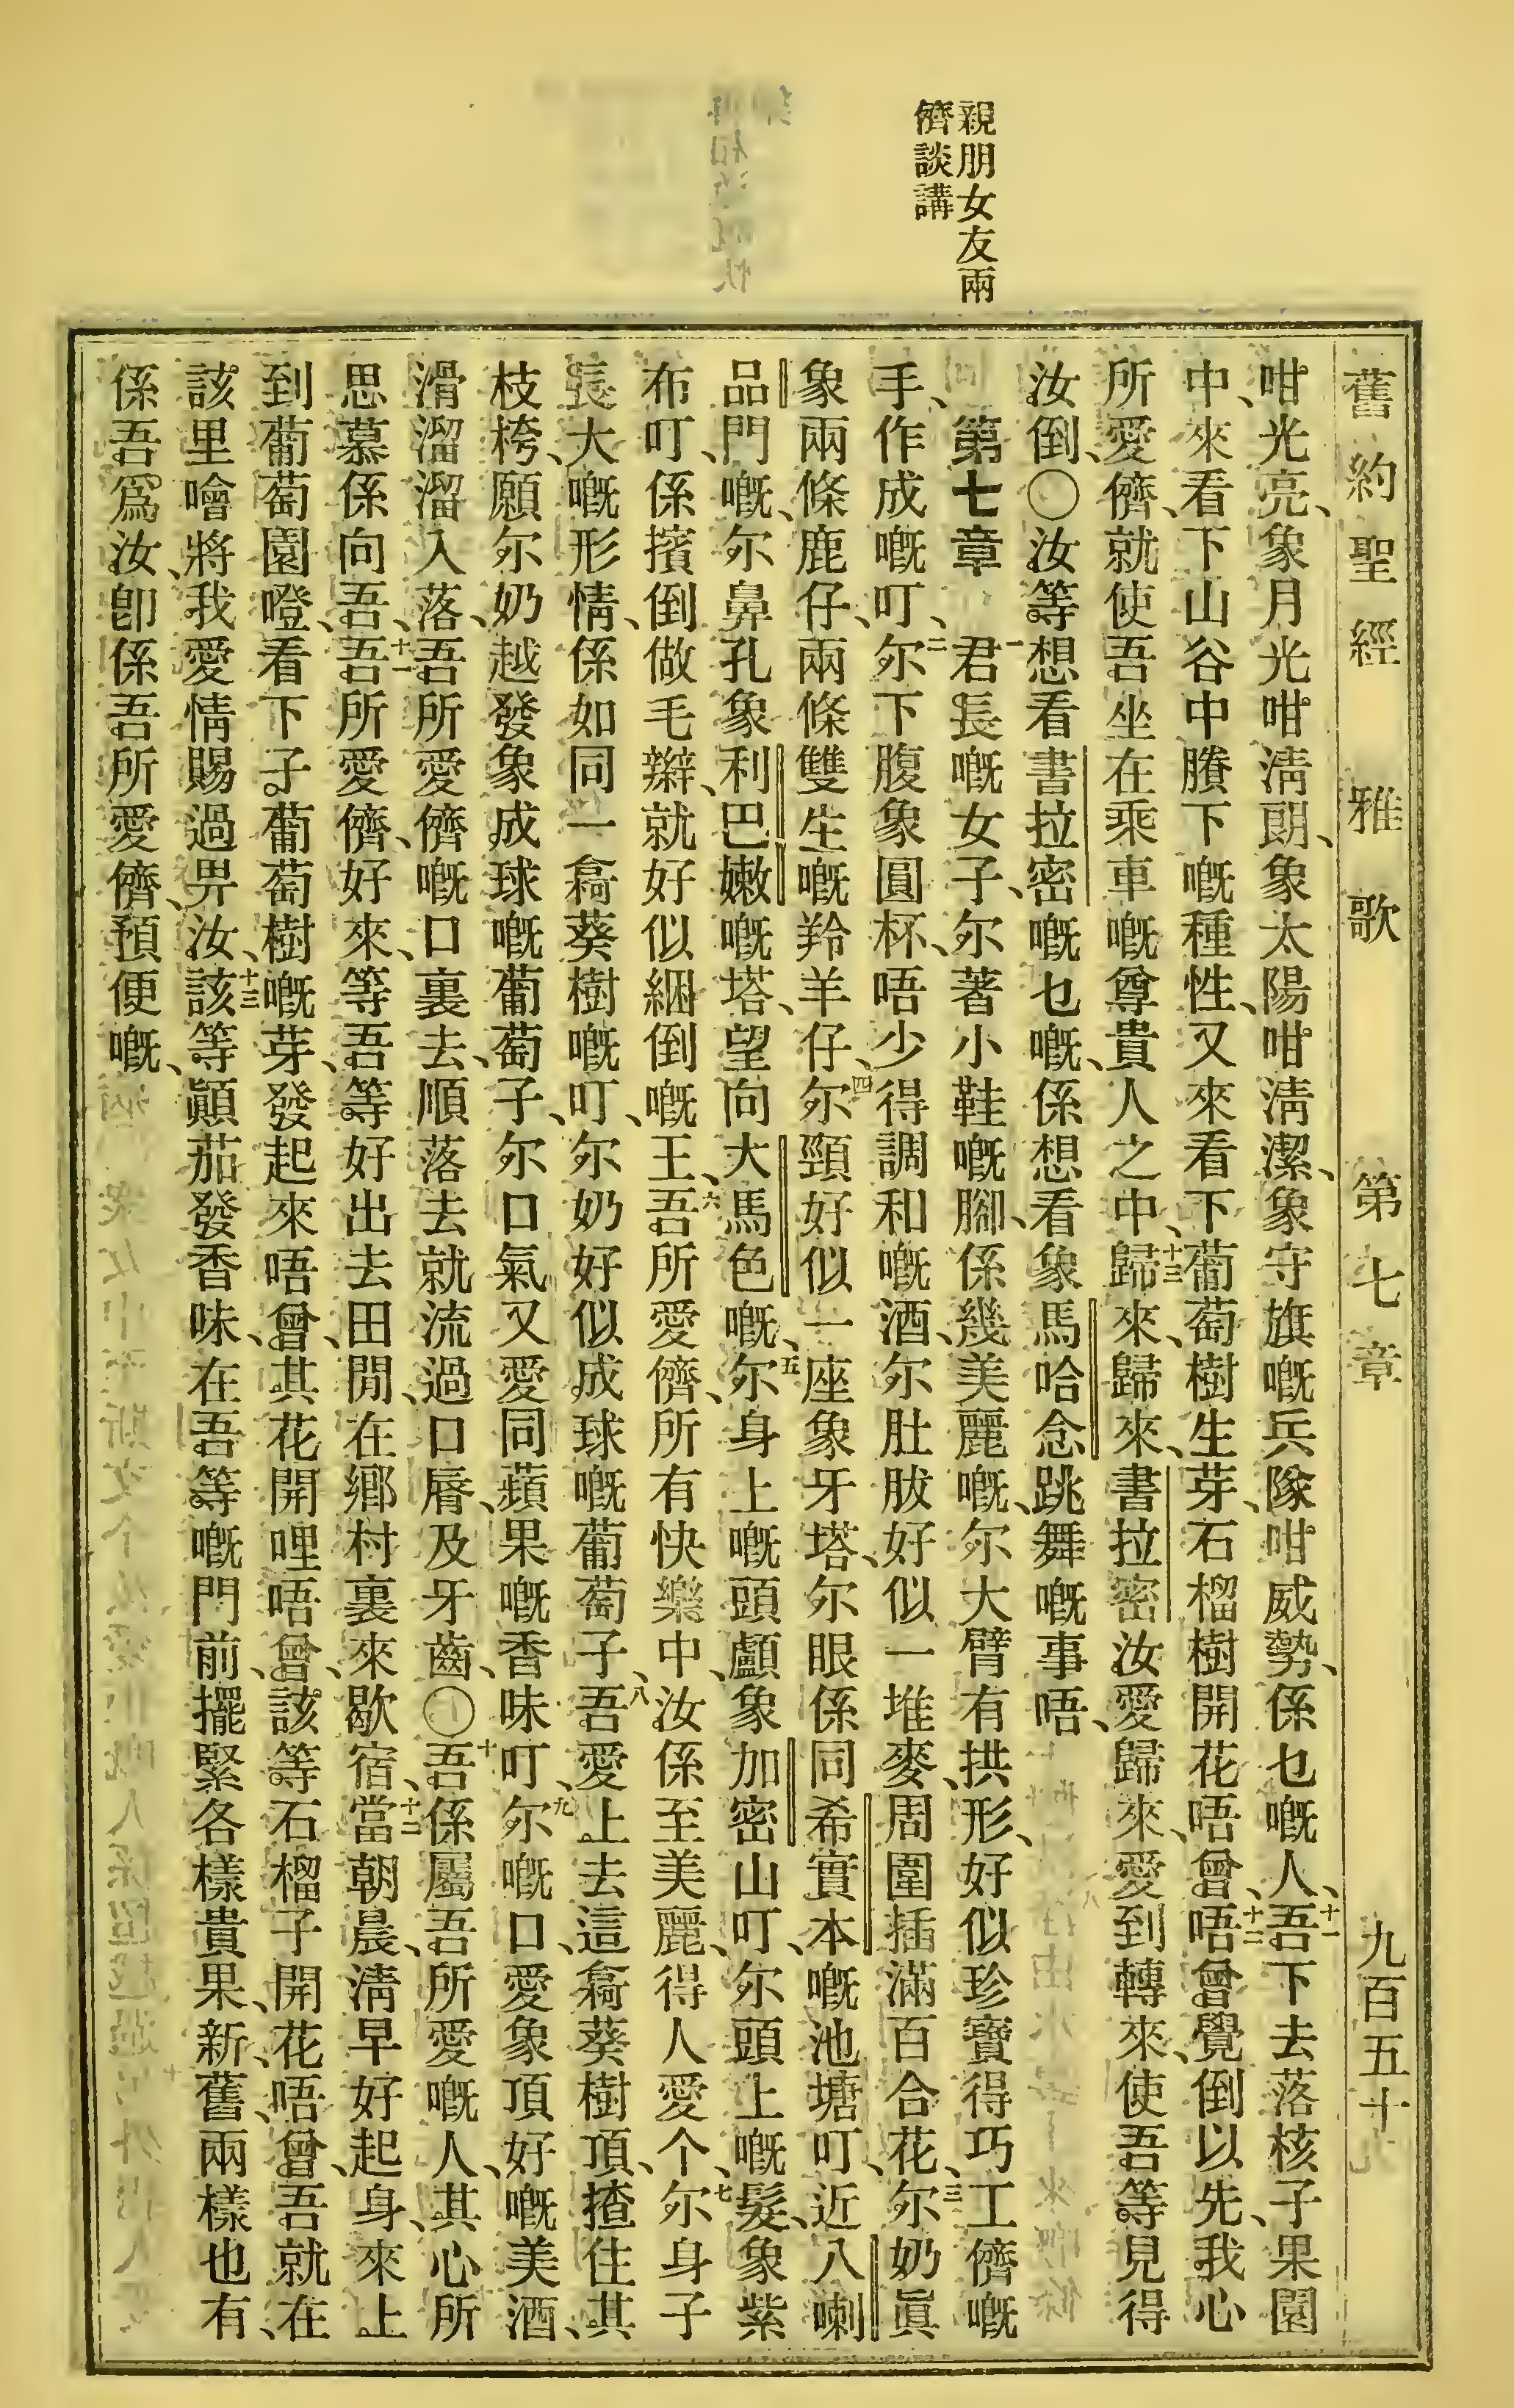 親朋女友兩
儕談講
舊約聖經 雅歌 第七章 九百五十
咁光亮、象月光咁淸朗、象太陽咁淸潔、象守旗嘅兵隊咁威勢、係乜嘅人、十一吾下去落核子果園
中、來看下山谷中賸下嘅種性、又來看下葡萄樹生芽、石榴樹開花唔曾、十二唔曾覺倒以先、我心
所愛儕、就使吾坐在乘車嘅尊貴人之中、十三歸來、歸來、書拉密汝愛歸來、愛到轉來、使吾等見得
汝倒、〇汝等想看書拉密嘅乜嘅、係想看象馬哈念跳舞嘅事唔、
第七章 一君長嘅女子、尔著小鞋嘅腳、係幾美麗嘅、尔大臂有拱形、好似珍寶得巧工儕嘅
手、作成嘅叮、二尔下腹象圓杯、唔少得調和嘅酒、尔肚胈好似一堆麥、周圍插滿百合花、三尔奶眞
象兩條鹿仔、兩條雙生嘅羚羊仔、四尔頸好似一座象牙塔、尔眼係同希實本嘅池塘叮、近八喇
品門嘅、尔鼻孔象利巴嫩嘅塔、望向大馬色嘅、五尔身上嘅頭顱、象加密山叮、尔頭上嘅髮、象紫
布叮、係擯倒做毛辮、就好似綑倒嘅王、六吾所愛儕、所有快樂中、汝係至美麗、得人愛个、七尔身子
長大嘅形情、係如同一樖葵樹嘅叮、尔奶好似成球嘅葡萄子、八吾愛上去這樖葵樹頂、揸住其
枝桍、願尔奶越發象成球嘅葡萄子、尔口氣又愛同蘋果嘅香味叮、九尔嘅口、愛象頂好嘅美酒、
滑溜溜入落、吾所愛儕嘅口裏去、順落去就流過口脣、及牙齒、〇十吾係屬吾所愛嘅人、其心所
思慕係向吾、十一吾所愛儕、好來、等吾等好出去田閒、在鄉村裏來歇宿、十二當朝晨、淸早好起身、來上
到葡萄園噔、看下子葡萄樹嘅芽、發起來唔曾、其花開哩唔曾、該等石榴子開花唔曾、吾就在
該里噲將我愛情賜過畀汝、十三該等顚茄發香味、在吾等嘅門前、擺緊各樣貴果、新舊兩樣也有、
係吾爲汝、卽係吾所愛儕、預便嘅、